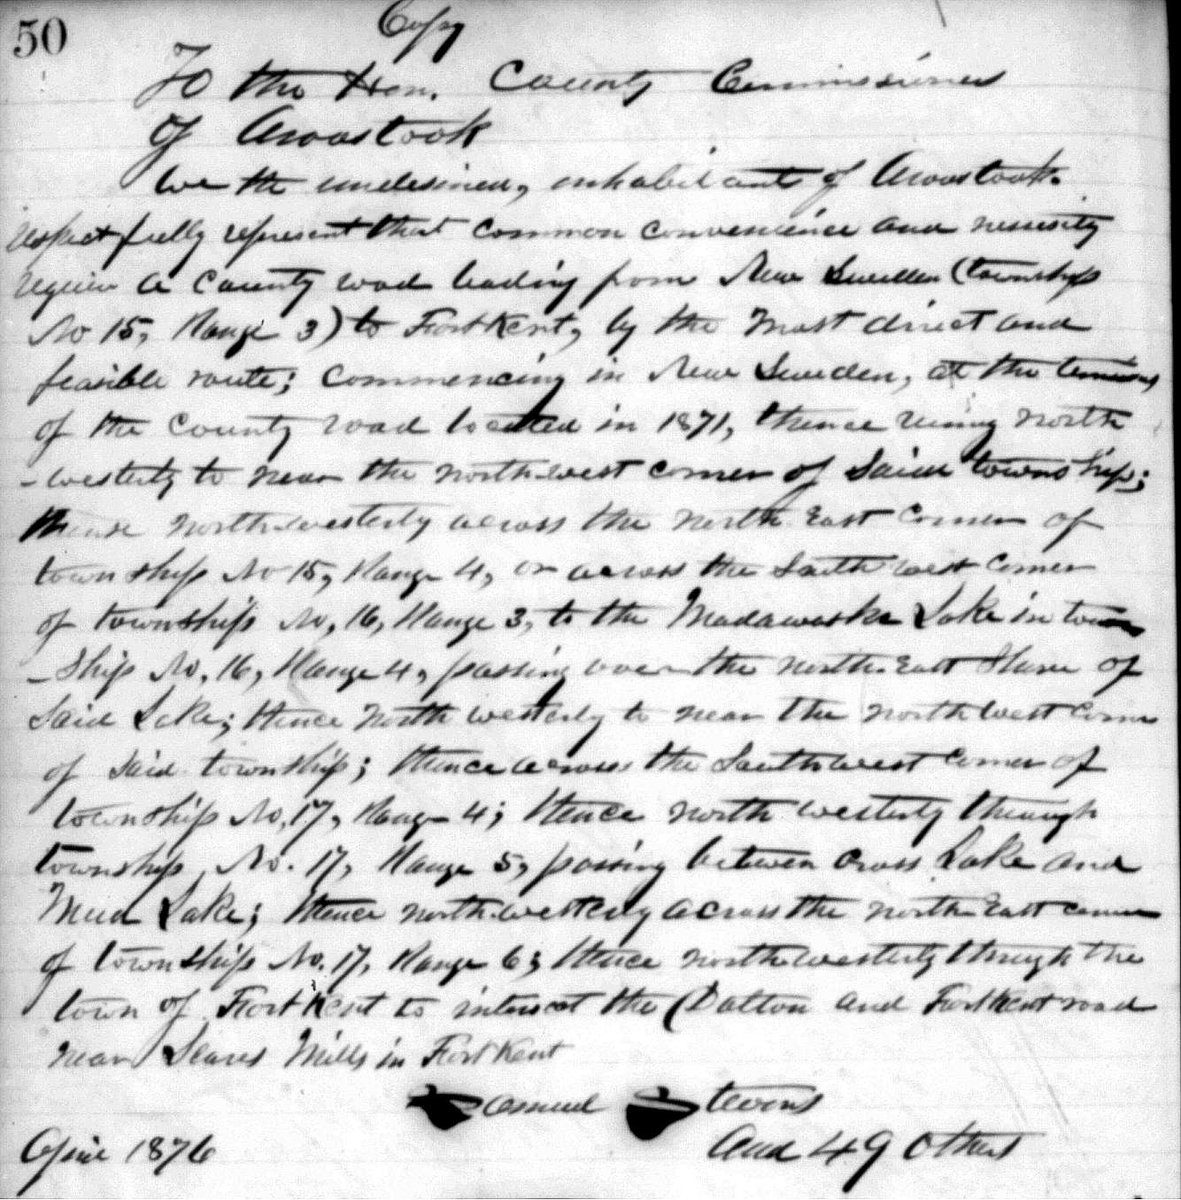 50
Copy
To the Hon. County Commissioners
of Aroostook
We the undersined, inhabitants of Aroostook.
respectfully represent that common convenience and nessesity
require a county road leading from New Sweden (township
No 15, Range 3) to Fort Kent, by the most direct and
feasible route; commencing in New Sweden, at the terminus
of the County road located in 1871, thence runing north
-westerly to near the north-west corner of said township;
thense north-westerly across the north East corner of
township No 15, Range 4, or across the South west corner
of township No, 16, Range 3, to the Madawaska Lake in town
-ship No, 16, Range 4, passing over the north-East Shore of
said Lake; thence north westerly to near the north west corner
of said township; thence across the South west corner of
township No, 17, Range 4; thence north westerly through
township No. 17, Range 5, passing between Cross Lake and
Mud Lake; thence north-westerly across the north East corner
of township No. 17, Range 6; thence north westerly through the
town of Fort Kent to intersect the (Dalton and Fort Kent road
near Sears Mills in Fort Kent
Samuel Stevens
And 49 Others
April 1876